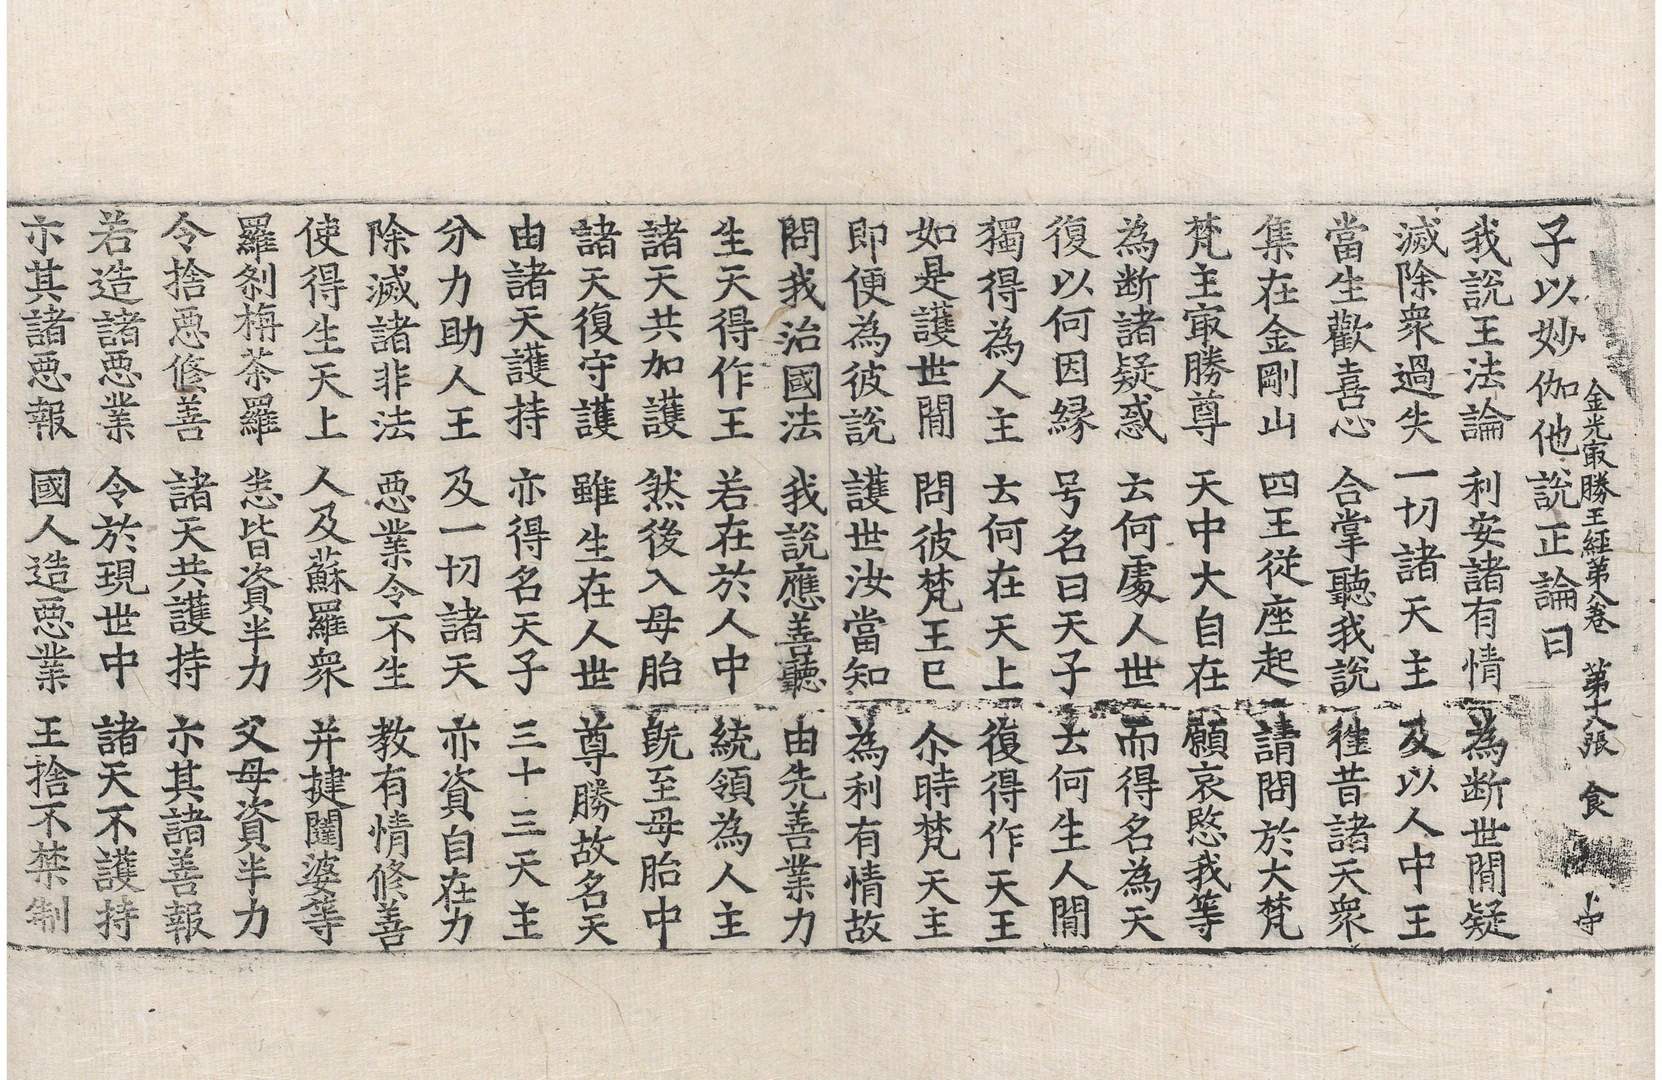 金光㝡勝王經第八卷 第十六張 食
子以妙伽他說正論曰
我說王法論 利安諸有情 為断世間疑
滅除衆過失 一切諸天主 及以人中王
當生歡喜心 合掌聽我說 徃昔諸天衆
集在金剛山 四王從座起 請問於大梵
梵主㝡勝尊 天中大自在 願哀愍我等
為断諸疑惑 云何處人世 而得名為天
復以何因縁 号名曰天子 云何生人間
獨得為人主 云何在天上 復得作天王
如是護世間 問彼梵王已 尒時梵天主
即便為彼說 護世汝當知 為利有情故
問我治國法 我說應善聽 由先善業力
生天得作王 若在於人中 統領為人主
諸天共加護 然後入母胎 旣至母胎中
諸天復守護 雖生在人世 尊勝故名天
由諸天護持 亦得名天子 三十三天主
分力助人王 及一切諸天 亦資自在力
除滅諸非法 惡業令不生 教有情修善
使得生天上 人及蘇羅衆 并揵闥婆等
羅刹栴茶羅 悉皆資半力 父母資半力
令捨惡修善 諸天共護持 亦其諸善報
若造諸惡業 令於現世中 諸天不護持
示其諸惡報 國人造惡業 王捨不禁制